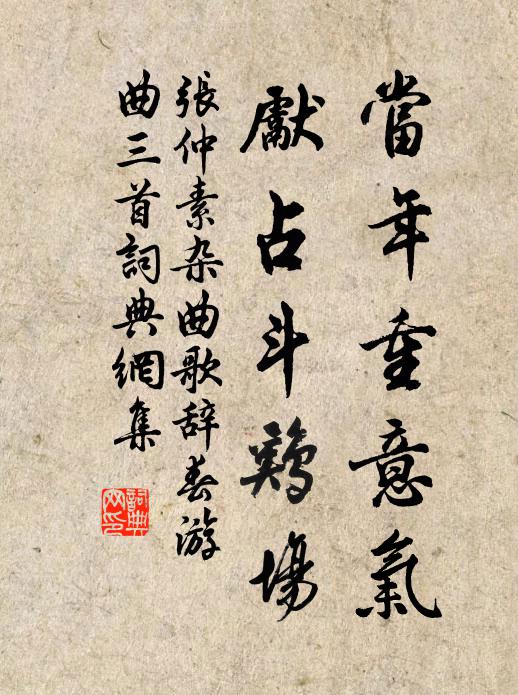 當年重意氣
獻占斗鷄場
張仲素杂曲歌辞春游
曲三首詞典網集
詞典
网印